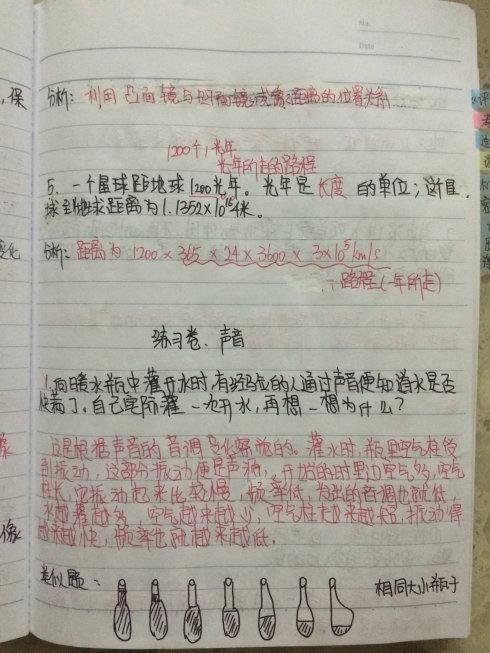 No.
Date
，保
分析：利用凸面镜与凹面镜成像
的位置关系
1200个1光年
光年所走的路程
5、一个星球距地球1200光年。光年是长度的单位；这星
球到地球距离为1.1352×10¹⁶米。
分析：距离为1200×365×24×3600×3×10⁵km/s
路程(一年所走)
变化
练习卷、声音
1、向暖水瓶中灌开水时，有经验的人通过声音便知道水是否
快满了。自己实际灌一次开水，再想一想为什么？
这是根据声音的音调变化解说的。灌水时，瓶里空气柱受
到振动，这部分振动便是声源，开始的时里边空气多，空气
柱长，它振动起来比较慢，频率低，发出的音调也就低，
水越灌越多，空气越来越少，空气柱越来越短，振动得
越来越快，频率也就越来越低。
像
类似题：
相同大小瓶子